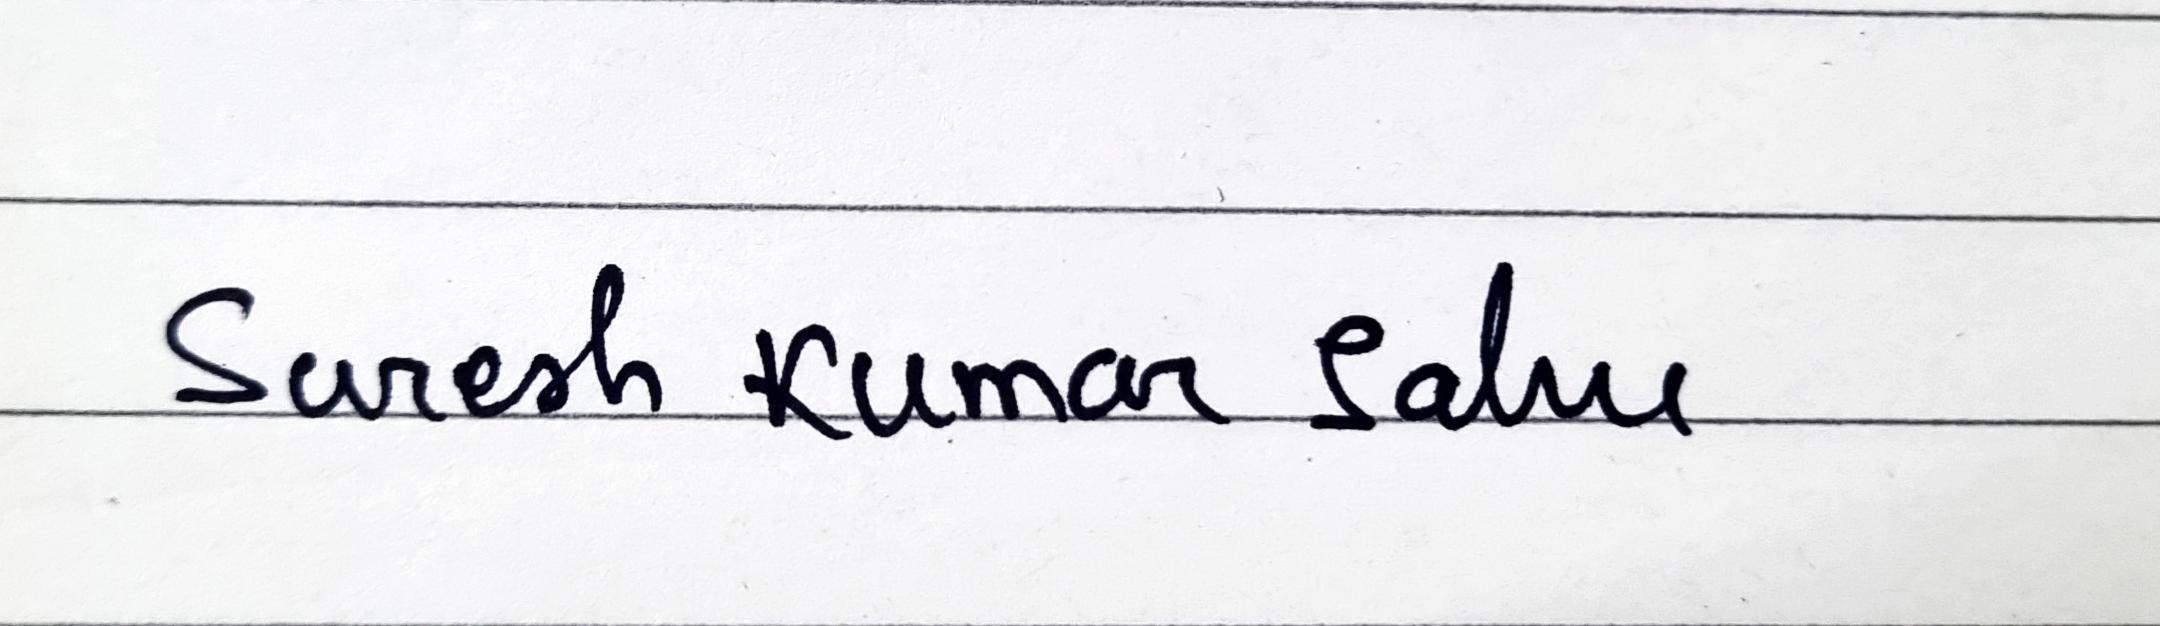 Suresh Kumar Sahu